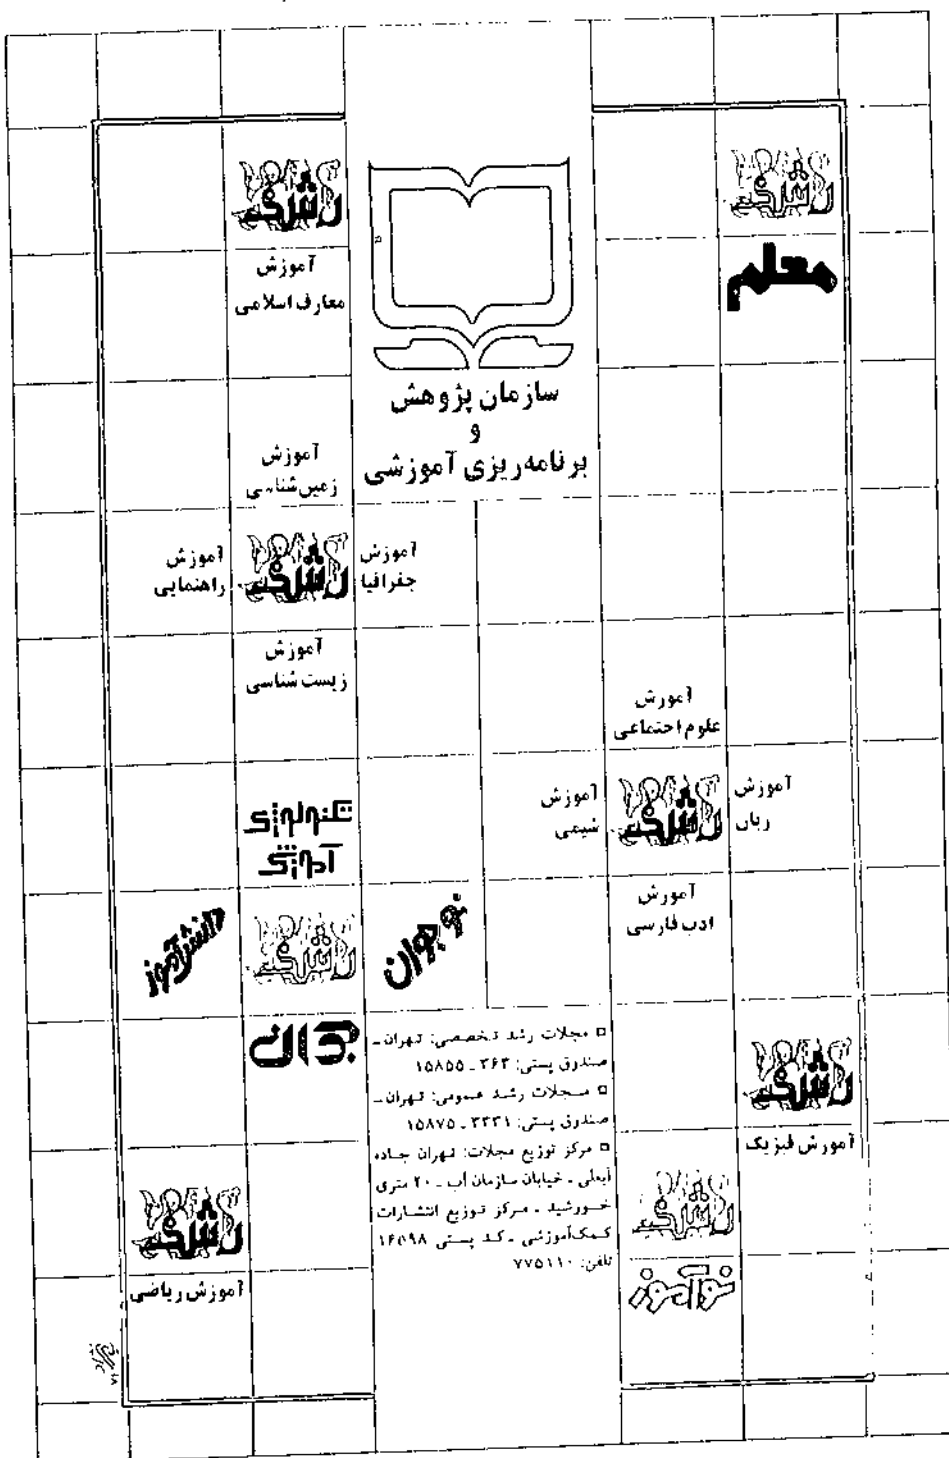 رشد
معلم
رشد
آموزش
معارف اسلامی
سازمان پژوهش
و
برنامه‌ریزی آموزشی
آموزش
زمین‌شناسی
آموزش
جغرافیا
رشد
آموزش
راهنمایی
آموزش
زیست شناسی
آموزش
علوم اجتماعی
آموزش
زبان
رشد
آموزش
شیمی
آموزش
ادب فارسی
تکنولوژی
آموزشی
نوجوان
رشد
دانش‌آموز
جوان
مجلات رشد تخصصی: تهران ـ
صندوق پستی: ۳۶۳ ـ ۱۵۸۵۵
مجلات رشد عمومی: تهران ـ
صندوق پستی: ۳۳۳۱ ـ ۱۵۸۷۵
مرکز توزیع مجلات: تهران جاده
آبعلی ـ خیابان سازمان آب ـ ۲۰ متری
خورشید ـ مرکز توزیع انتشارات
کمک‌آموزشی ـ کد پستی ۱۶۵۹۸
تلفن: ۷۷۵۱۱۰
رشد
آموزش فیزیک
رشد
نوآموز
رشد
آموزش ریاضی